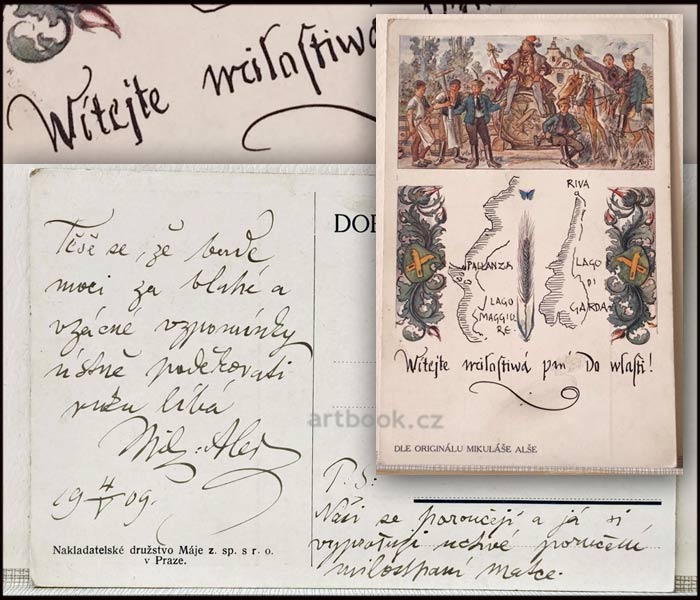 Wítejte milostiwá
Těše se, že bude
moci za blahé a
vzácné vzpomínky
ústně poděkovati
ruku líbá
Mik. Aleš
19 4/V 09.
Nakladatelské družstvo Máje z. sp. s r. o.
v Praze.
DO
P. S.
Naši se poroučejí a já si
vyprošuji uctivé poručení
milostpaní matce.
artbook.cz
RIVA
PALLANZA
LAGO
MAGGIO
RE.
LAGO
DI
GARDA
Wítejte milostiwá pní Do wlasti!
DLE ORIGINÁLU MIKULÁŠE ALŠE